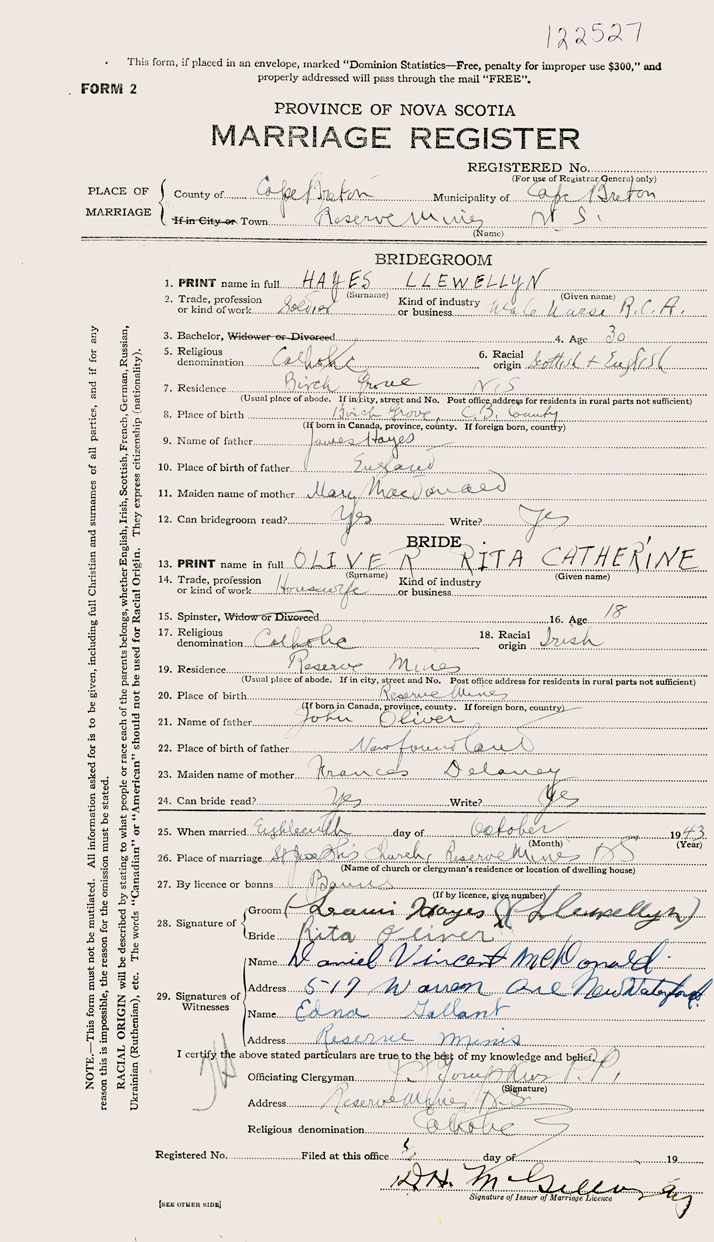 122527
This form, if placed in an envelope, marked "Dominion Statistics—Free, penalty for improper use $300," and
properly addressed will pass through the mail "FREE".
FORM 2
PROVINCE OF NOVA SCOTIA
MARRIAGE REGISTER
REGISTERED No.
(For use of Registrar General only)
PLACE OF MARRIAGE
County of Cape Breton Municipality of Cape Breton
If in City or Town Reserve Mines N.S.
(Name)
BRIDEGROOM
1. PRINT name in full HAYES LLEWELLYN
(Surname) (Given name)
2. Trade, profession or kind of work Soldier Kind of industry or business Male Nurse R.C.A.
3. Bachelor, Widower or Divorced 4. Age 30
5. Religious denomination Catholic 6. Racial origin Scottish + English
7. Residence Birch Grove N.S
(Usual place of abode. If in city, street and No. Post office address for residents in rural parts not sufficient)
8. Place of birth Birch Grove, C.B. County
(If born in Canada, province, county. If foreign born, country)
9. Name of father James Hayes
10. Place of birth of father England
11. Maiden name of mother Mary MacDonald
12. Can bridegroom read? Yes Write? Yes
BRIDE
13. PRINT name in full OLIVER RITA CATHERINE
(Surname) (Given name)
14. Trade, profession or kind of work Housewife Kind of industry or business
15. Spinster, Widow or Divorced 16. Age 18
17. Religious denomination Catholic 18. Racial origin Irish
19. Residence Reserve Mines
(Usual place of abode. If in city, street and No. Post office address for residents in rural parts not sufficient)
20. Place of birth Reserve Mines
(If born in Canada, province, county. If foreign born, country)
21. Name of father John Oliver
22. Place of birth of father Newfoundland
23. Maiden name of mother Frances Delaney
24. Can bride read? Yes Write? Yes
25. When married Eighteenth day of October 1943
(Month) (Year)
26. Place of marriage St Joseph's Church, Reserve Mines NS
(Name of church or clergyman's residence or location of dwelling house)
27. By licence or banns Banns
(If by licence, give number)
28. Signature of
Groom Hayes (Llewellyn)
Bride Rita Oliver
29. Signatures of Witnesses
Name Daniel Vincent McDonald
Address 517 Warren Ave New Waterford
Name Edna Gallant
Address Reserve Mines
I certify the above stated particulars are true to the best of my knowledge and belief.
Officiating Clergyman P.P.
(Signature)
Address Reserve Mines N.S.
Religious denomination Catholic
Registered No. Filed at this office day of 19
D.H. McGillivray
Signature of Issuer of Marriage Licence
[SEE OTHER SIDE]
NOTE.—This form must not be mutilated. All information asked for is to be given, including full Christian and surnames of all parties, and if for any
reason this is impossible, the reason for the omission must be stated.
RACIAL ORIGIN will be described by stating to what people or race each of the parents belongs, whether English, Irish, Scottish, French, German, Russian,
Ukrainian (Ruthenian), etc. The words "Canadian" or "American" should not be used for Racial Origin. They express citizenship (nationality).